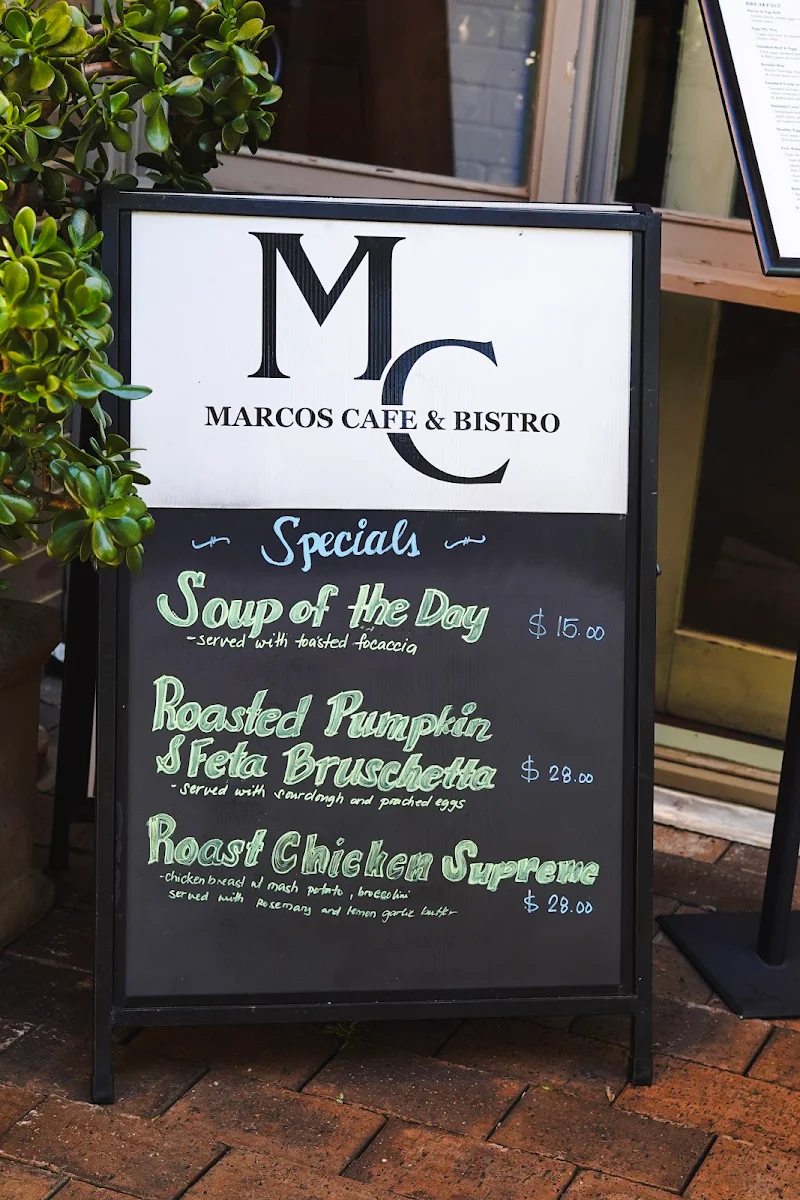 M
C
MARCOS CAFE & BISTRO
Specials
Soup of the Day $ 15.00
-served with toasted focaccia
Roasted Pumpkin
& Feta Bruschetta $ 28.00
-served with sourdough and poached eggs
Roast Chicken Supreme
-chicken breast w/ mash potato, broccolini
served with rosemary and lemon garlic butter $ 28.00
BREAKFAST